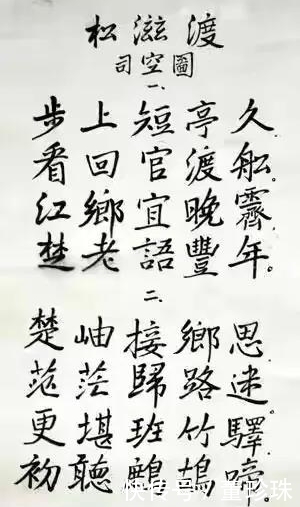 松滋渡
司空圖
一、
步上短亭久,
看回官渡舩。
江鄉宜晚霽,
楚老語豐年。
二、
楚岫接鄉思,
茫茫歸路迷。
更堪班竹驛,
初聽鷓鴣啼。
快传号/董珍珠